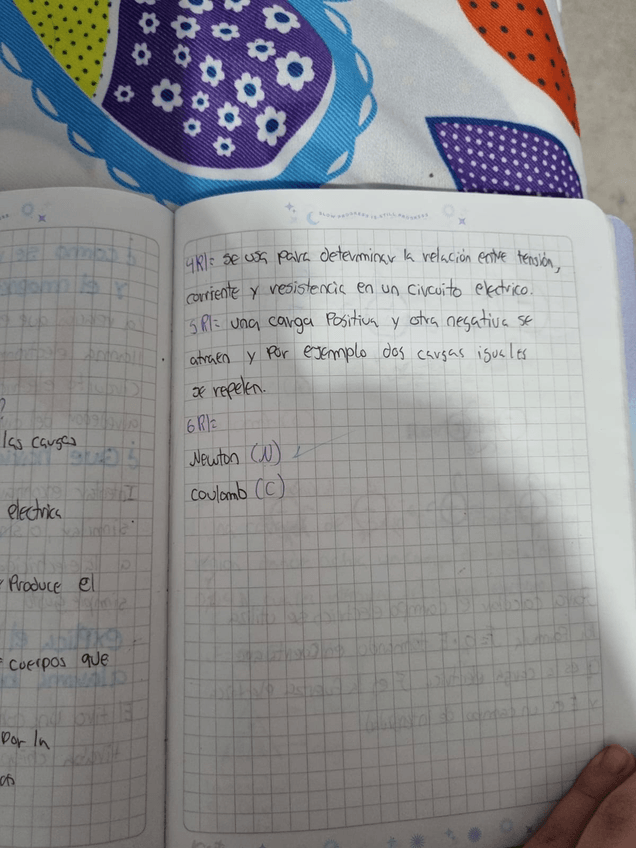 las cargas
electrica
Produce el
cuerpos que
Por la
4R/= se usa para determinar la relación entre tensión,
corriente y resistencia en un circuito electrico.
5R/= una carga Positiva y otra negativa se
atraen y Por ejemplo dos cargas iguales
se repelen.
6R/=
Newton (N)
Coulomb (C)